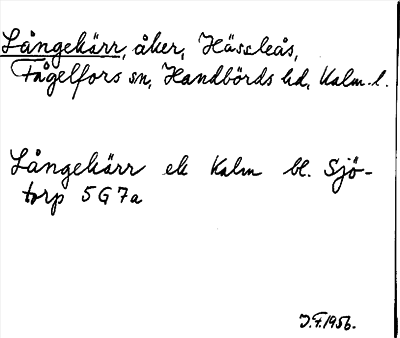 Långekärr, åker, Hässleås,
Fågelfors sn, Handbörds hd, Kalm. l.
Långekärr ek Kalm bl. Sjö-
torp 5G7a
J.F.1956.